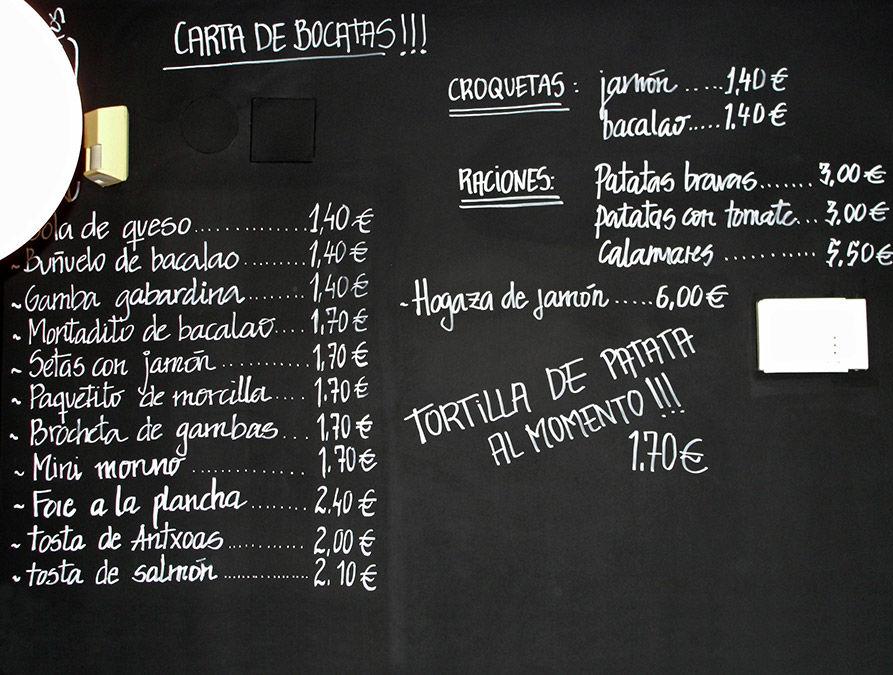 CARTA DE BOCATAS!!!
CROQUETAS: jamón.....1,40€
bacalao.....1.40€
RACIONES: Patatas bravas.......3,00€
patatas con tomate...3,00€
Calamares...........5,50€
-Hogaza de jamón.....6,00€
TORTILLA DE PATATA
AL MOMENTO!!!
1.70€
de queso............1,40€
~Buñuelo de bacalao.......1,40€
~Gamba gabardina.......1,40€
~Montadito de bacalao....1,70€
~Setas con jamón..........1,70€
~Paquetito de morcilla....1.70€
~Brocheta de gambas...1,70€
~Mini moruno..............1.70€
~Foie a la plancha........2.40€
~tosta de Antxoas...........2,00€
~tosta de salmón............2.10€